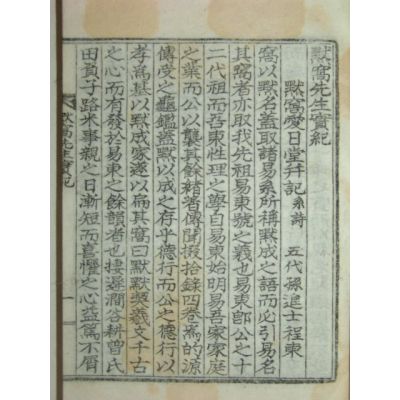 默窩先生實紀
默窩愛日堂幷記 系詩 五代孫進士程東
窩以默名盖取諸易系所稱默成之語而必引易名
其窩者亦取我先祖易東號之義也易東卽公之十
二代祖而吾東性理之學自易東始明易吾家家庭
之業而公以襲其餘緖者傳聞掇拾錄四卷爲的源
傳受之龜鑑盖默以成之存乎德行而公之德行以
孝爲基以默成家遂以扁其窩曰默默契羲文千古
之心而有發於易東之餘韻者也捿遲澗谷耕曾氏
田負子路米事親之日漸短而喜懼之心益篤不屑
默窩先生實紀 一